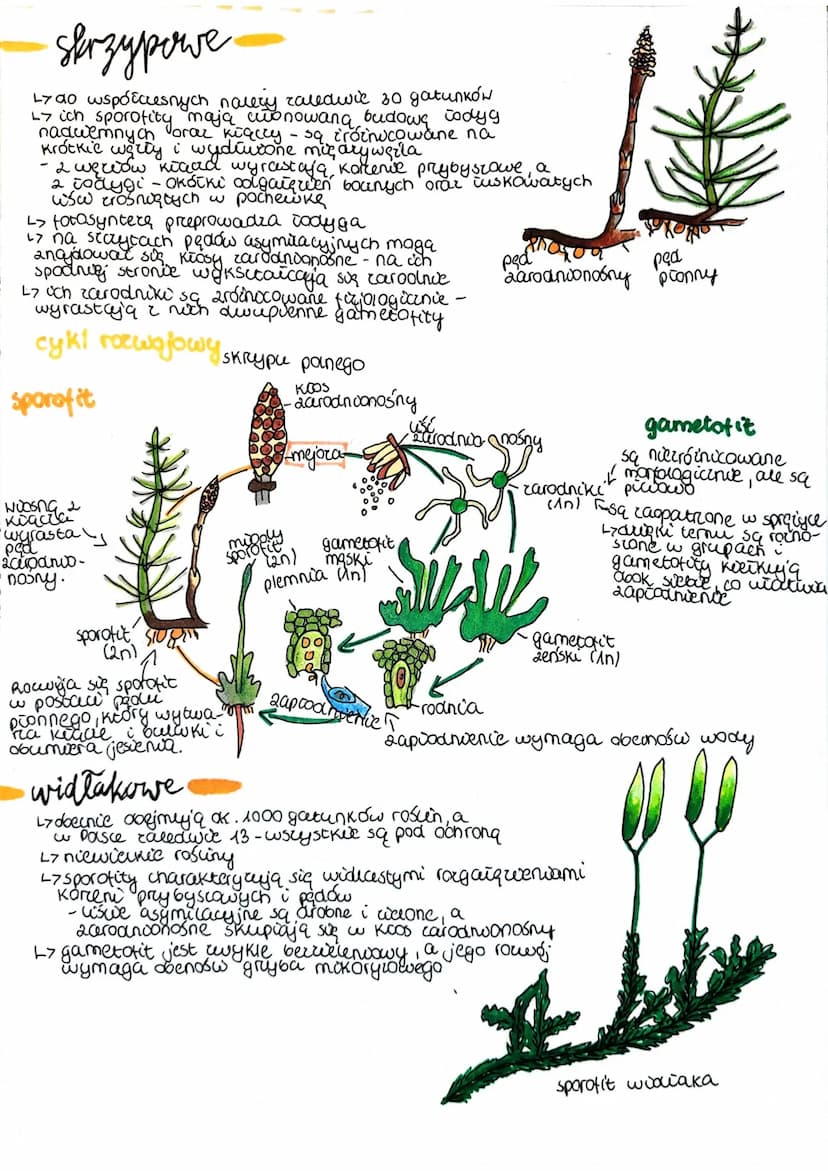 skrzypowe
↳ do współczesnych należy zaledwie 30 gatunków
↳ ich sporofity mają członowaną budowę łodyg
nadziemnych oraz kłączy - są zróżnicowane na
krótkie węzły i wydłużone międzywęźla
- z węzłów kłącza wyrastają korzenie przybyszowe, a
z łodygi - okółki odgałęzień bocznych oraz łuskowatych
liści zrośniętych w pochewkę
↳ fotosyntezę przeprowadza łodyga
↳ na szczytach pędów asymilacyjnych mogą
znajdować się kłosy zarodnionośne - na ich
spodniej stronie wykształcają się zarodnie
↳ ich zarodniki są zróżnicowane fizjologicznie -
wyrastają z nich dwupienne gametofity
pęd
zarodnionośny
pęd
płonny
cykl rozwojowy
skrzypu polnego
sporofit
kłos
zarodnionośny
mejoza
liść
zarodnionośny
gametofit
są niezróżnicowane
morfologicznie, ale są
płciowo
zarodniki
(1n)
są zaopatrzone w sprężyce
↳ dzięki temu są rozno-
szone w grupach i
gametofity kiełkują
obok siebie, co ułatwia
zapłodnienie
wiosną z
kłącza
wyrasta
pęd
zarodnio-
nośny.
młody
sporofit
(2n)
gametofit
męski
(1n)
plemnia
sporofit
(2n)
gametofit
żeński (1n)
Rozwija się sporofit
w postaci pędu
płonnego, który wytwa-
rza kłącze i bulwki i
obumiera jesienią.
zapłodnienie
rodnia
zapłodnienie wymaga obecności wody
widłakowe
↳ obecnie obejmują ok. 1000 gatunków roślin, a
w Polsce zaledwie 13 - wszystkie są pod ochroną
↳ niewielkie rośliny
↳ sporofity charakteryzują się widlastymi rozgałęzieniami
korzeni przybyszowych i pędów
- liście asymilacyjne są drobne i zielone, a
zarodnionośne skupiają się w kłos zarodnionośny
↳ gametofit jest zwykle bezzieleniowy, a jego rozwój
wymaga obecności grzyba mikoryzowego
sporofit widłaka